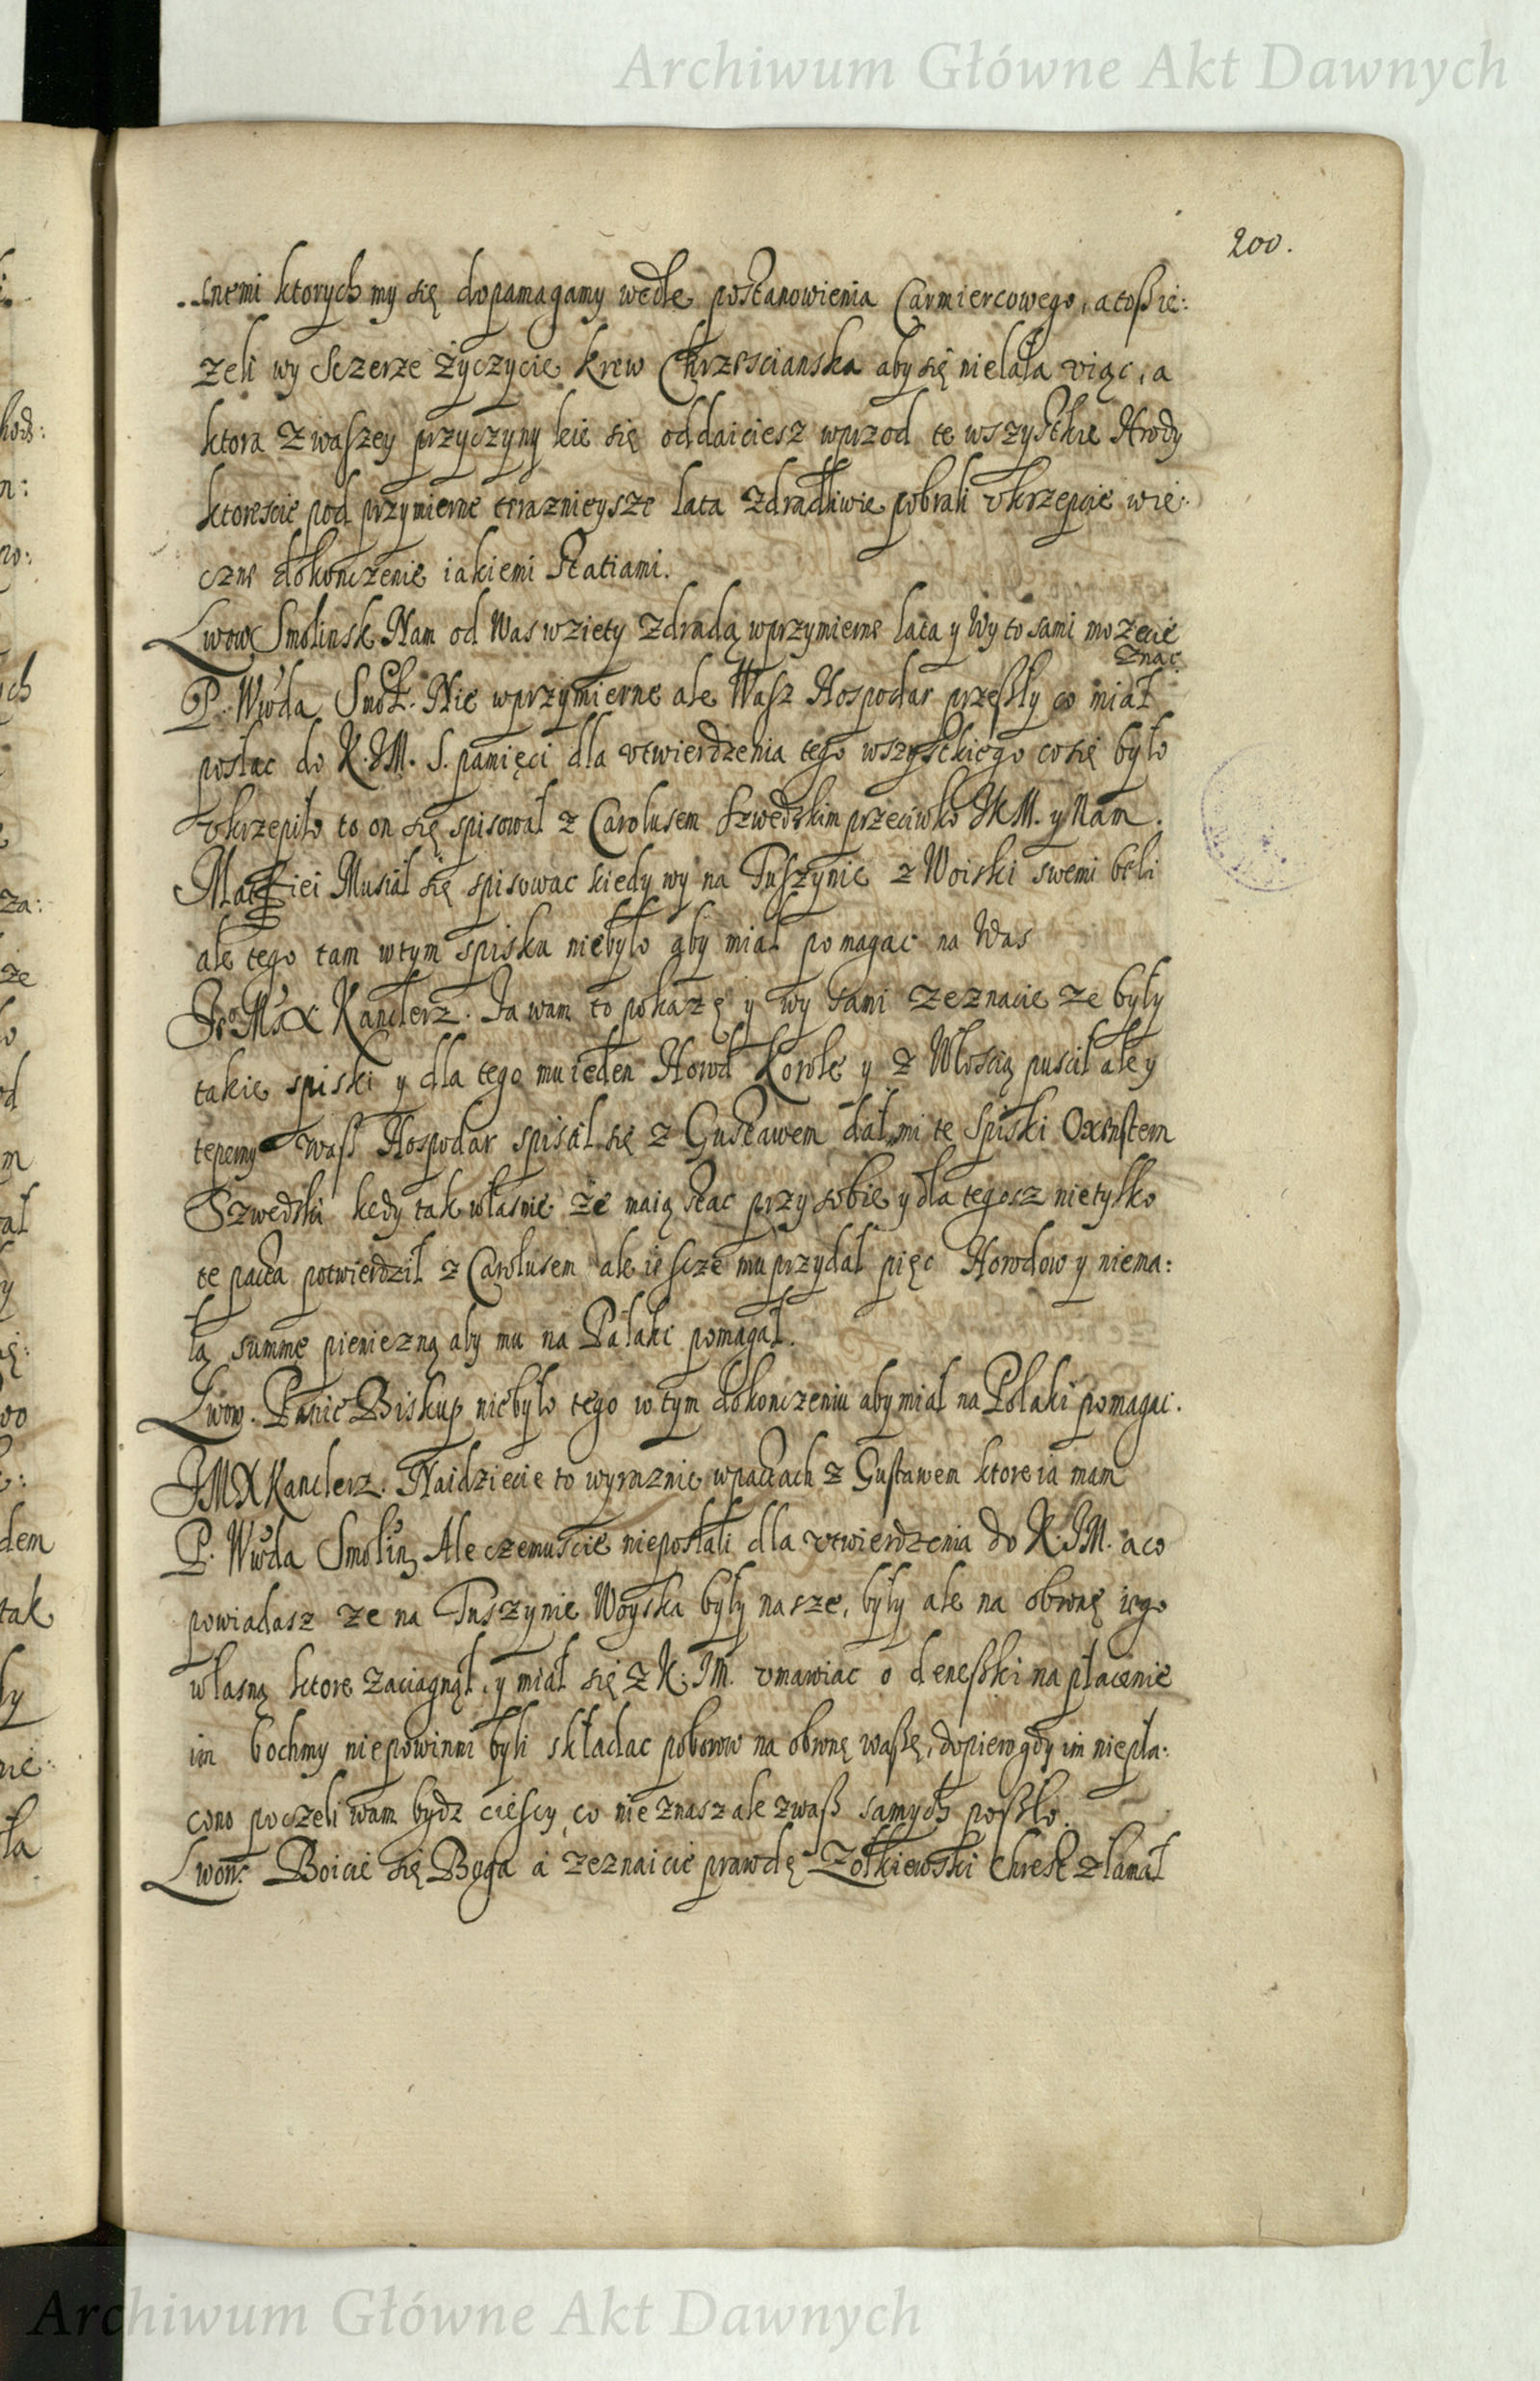 Archiwum Główne Akt Dawnych
200.
snemi ktorych my się dopamagamy wedle postanowienia Carmiercowego, a toßie:
zeli wy Sczerze Życzycie krew Chrzescianska aby się nielała więc, a
ktora z waszey przyczyny leie się oddaiciesz wprzod te wszystkie Hrody
ktoreście pod przymierne teraznieysze lata zdradliwie pobrali vkrzepcie wie:
czne dokonczenie iakiemi Statiami.
Lwow Smolinsk Nam od Was wziety zdradą wprzymierne lata y Wy to sami mozecie
znac
P. Wwda Smol. Nie wprzymierne ale Wasz Hospodar przeszły co miał
posłac do K. JM. S. pamięci dla vtwierdzenia tego wszystkiego co się było
vkrzepiło to on się spisował z Carolusem Szwedzkim przeciwko JKM. y Nam.
Musiał się spisowac kiedy wy na Tuszynie z Woiski swemi beli
ale tego tam wtym spisku niebyło aby miał pomagac na Was
Je° Mć X Kanclerz. Ja wam to pokazę y wy sami zeznacie ze były
takie spiski y dla tego mu ieden Horod Korole y z Włoscią puscił ale y
teperny waß Hospodar spisał się z Gustawem dał mi te Spiski Oxenstern
Szwedski kędy tak własnie że maią stac przy sobie y dla tegosz nietylko
te pacta potwierdził z Carolusem ale iescze mu przydał pięc Horodow y niema:
łą summę pieniezną aby mu na Polaki pomagał.
Lwow. Panie Biskup niebyło tego w tym dokonczeniu aby miał na Polaki pomagac.
JMX Kanclerz. Naidziecie to wyraznie wpactach z Gustawem ktore ia mam
P. Wwda Smolin. Ale czemuscie nieposłali dla vtwierdzenia do K. JM. a co
powiadasz ze na Tuszynie Woyska były nasze, były ale na obronę iego
własną ktore zaciagnął, y miał się z K. JM. vmawiac o deneßki na płacenie
im bochmy niepowinni byli składac poborow na obronę waßę, dopiero gdy im niepła:
cono poczeli wam bydz cięscy, co nie znasz ale zwaß samych poßło.
Lwow. Boicie się Boga a zeznaicie prawdę Zołkiewski Chrest złamał
Archiwum Główne Akt Dawnych